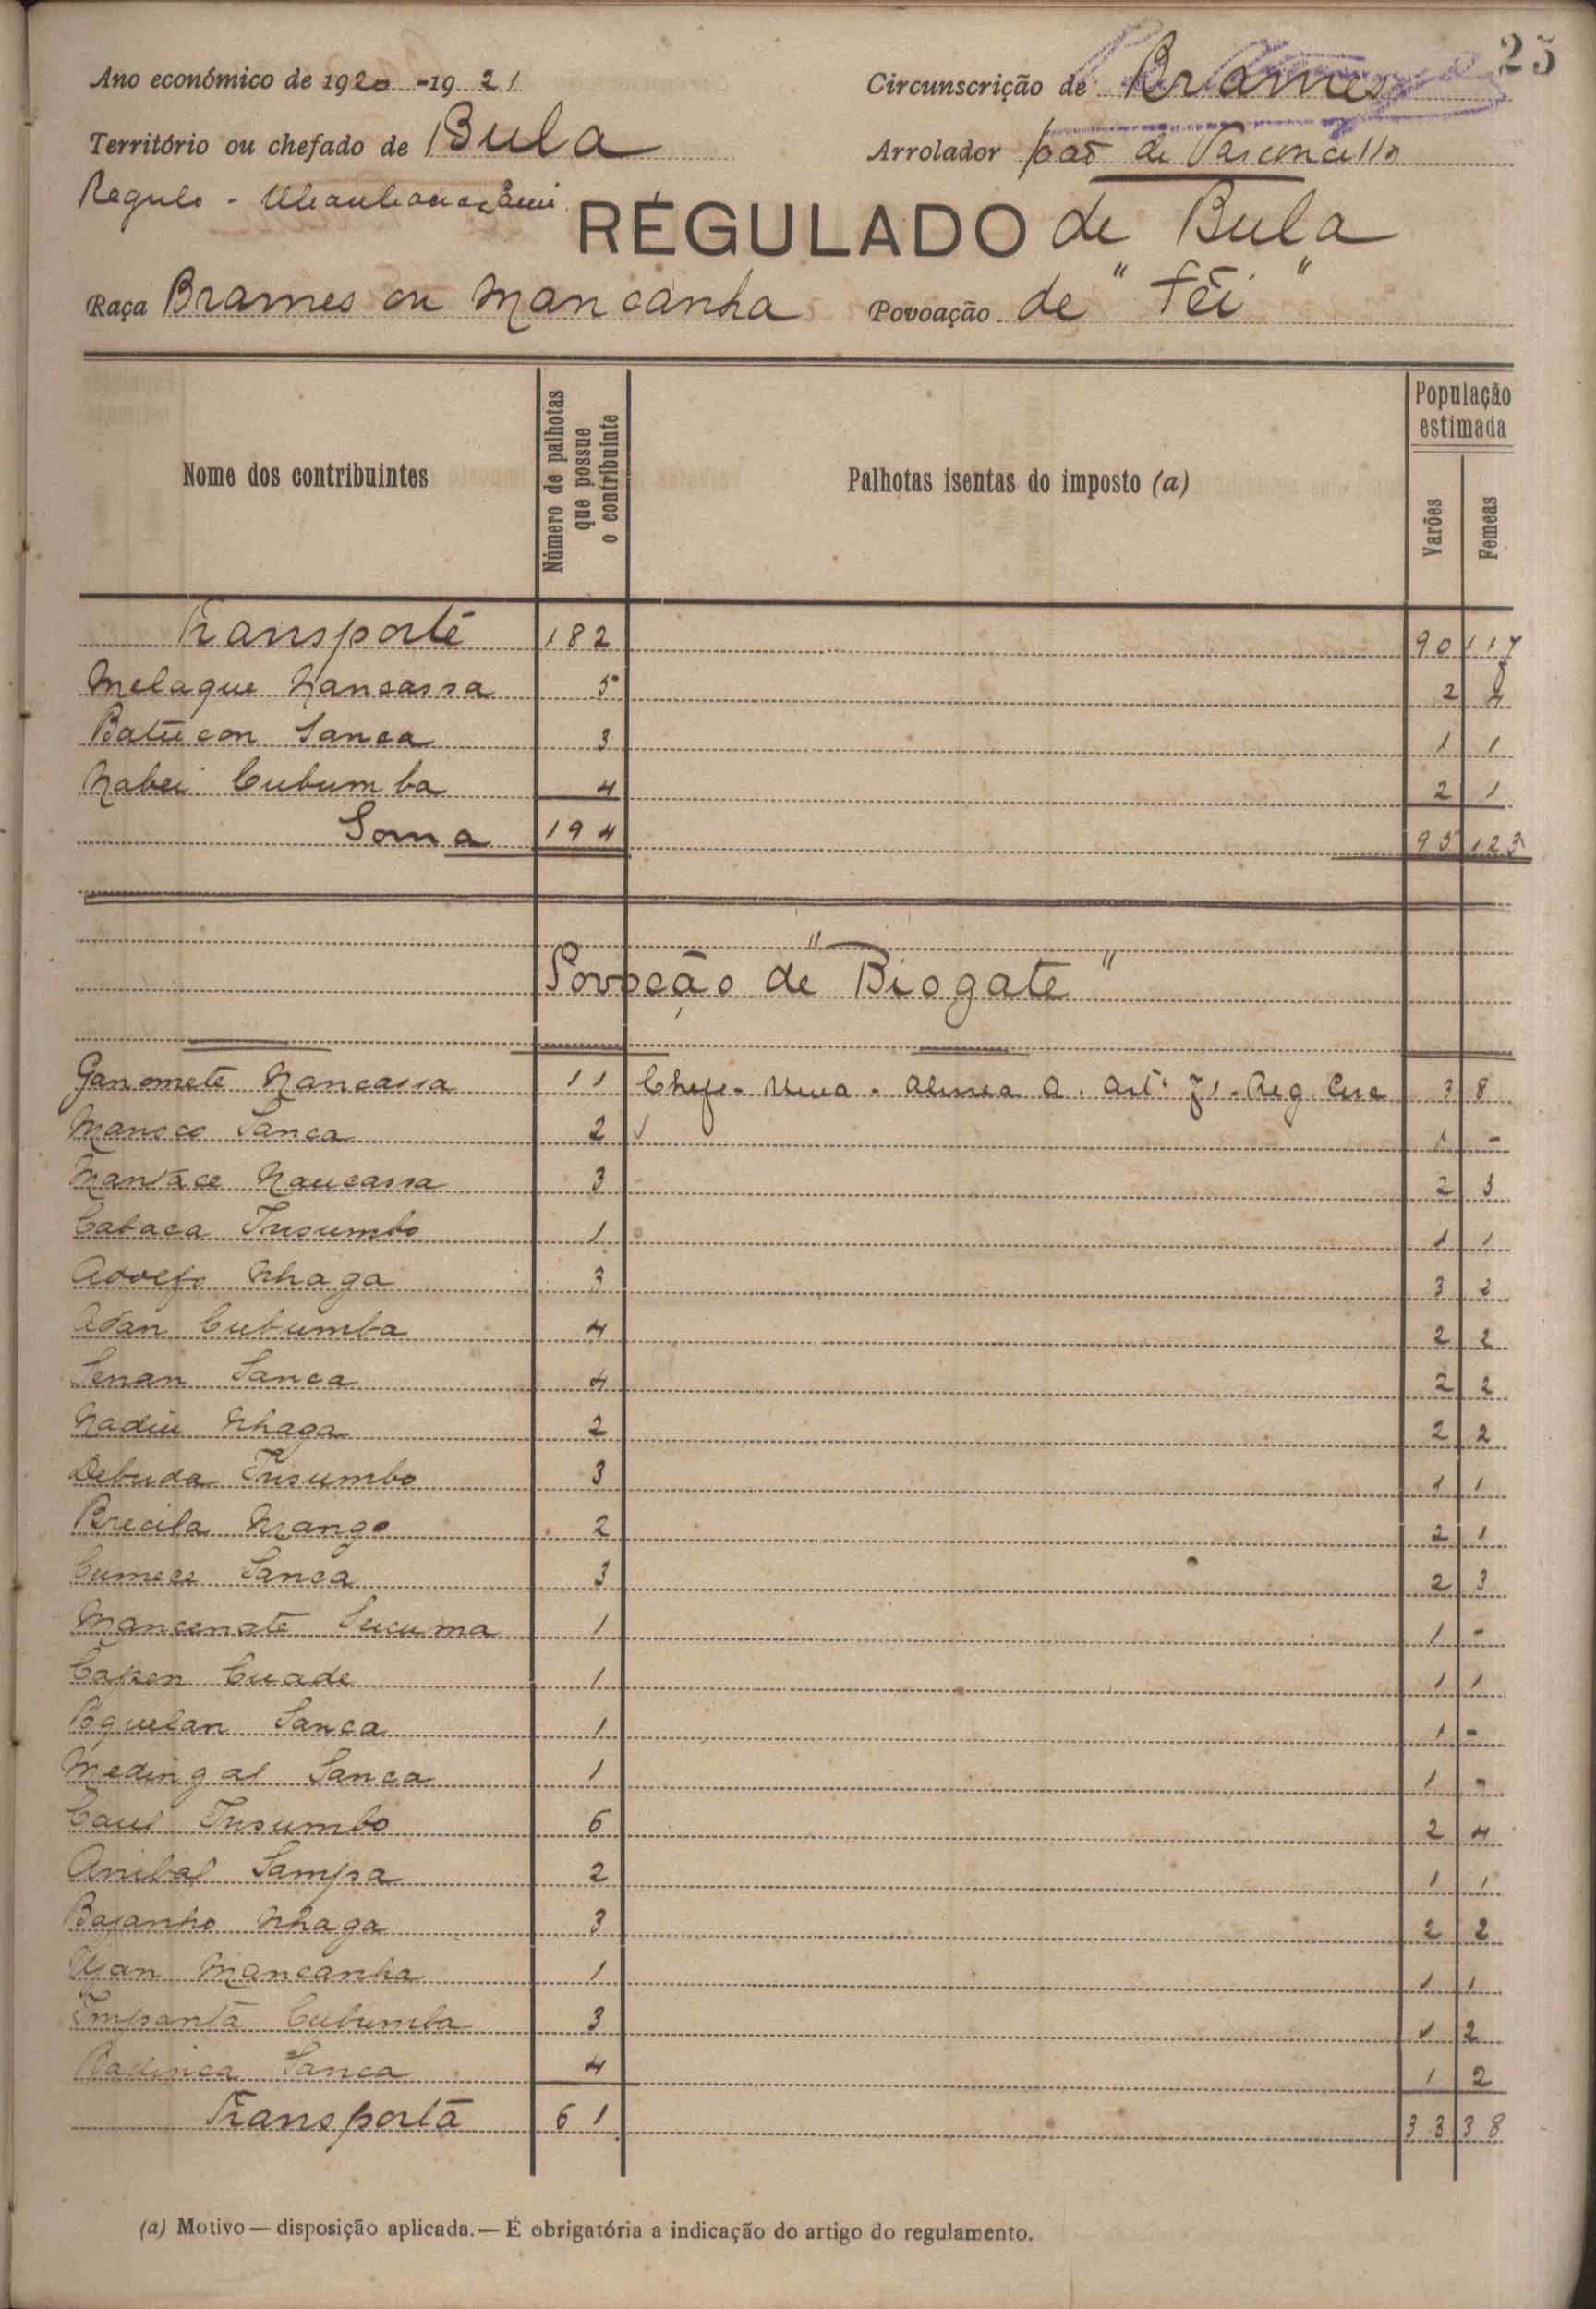 25
Ano económico de 1920-1921
Circunscrição de Brames
Território ou chefado de Bula
Arrolador João de Vasconcellos
Regulo -
RÉGULADO de Bula
Raça Brames ou Mancanha
Povoação de "Téi"
Nome dos contribuintes
Número de palhotas que possue o contribuinte
Palhotas isentas do imposto (a)
População estimada
Varões
Femeas
Transporte 182 90 117
Melaque Nancassa 5 2 4
Batucon Sanca 3 1 1
Nabei Cubumba 4 2 1
Soma 194 95 123
Povoção de "Biogate"
Ganomete Nancassa 11 Chefe - Uma - alinea a. artº 71 - Reg. 3 8
Manoco Sanca 2 1 -
Mantace Nancassa 3 2 3
Cabaca Insumbo 1 1 1
Adolfo Nhaga 3 3 2
Adan Cubumba 4 2 2
Senan Sanca 4 2 2
Nadiu Nhaga 2 2 2
Debuda Insumbo 3 1 1
Brecila Nzango 2 2 1
Cumece Sanca 3 2 3
Mancenate Sucuma 1 1 -
Capen Cuade 1 1 1
Bquelan Sanca 1 1 -
Medingal Sanca 1 1 -
Caul Insumbo 6 2 4
Anibal Sampa 2 1 1
Bajanho Nhaga 3 2 2
Ujan Mancanha 1 1 1
Impantã Cubumba 3 1 2
Badinca Sanca 4 1 2
Transporta 61 33 38
(a) Motivo — disposição aplicada. — É obrigatória a indicação do artigo do regulamento.